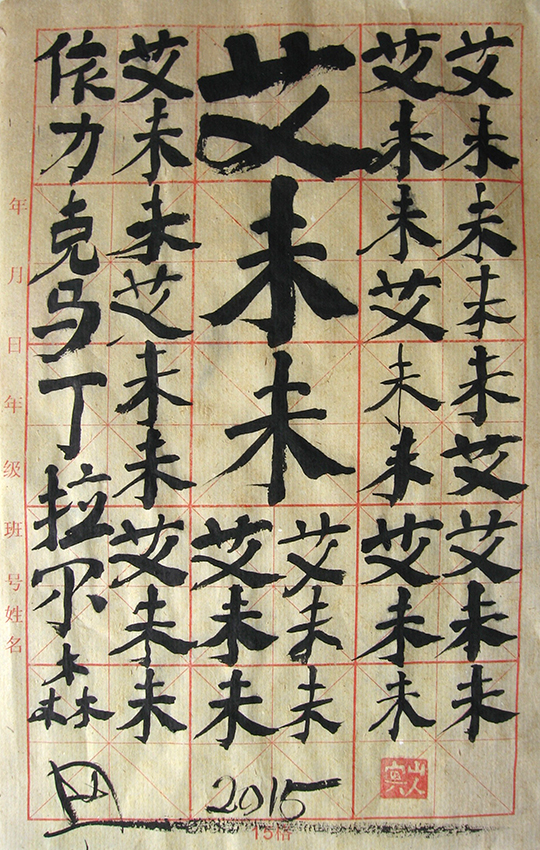 艾未未未未艾艾未未
艾未未艾未未艾未未
艾未未
艾未未
艾未未
艾未未艾未未艾未未
依力克马丁拉尔森
年 月 日 年 级 班 号 姓 名
2015
15格